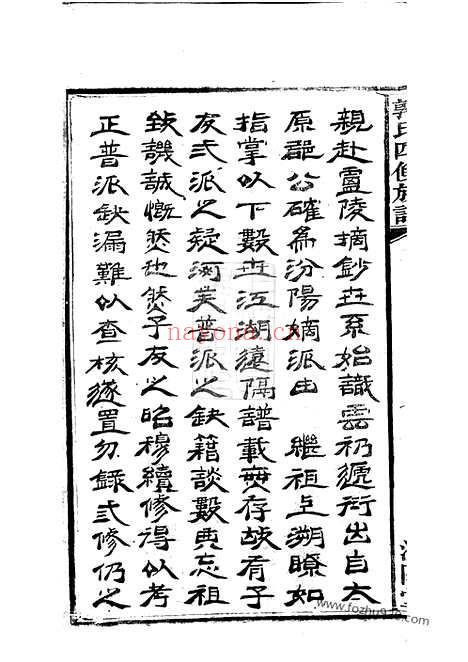 郭氏四修族譜
親赴盧陵摘鈔世系始識雲礽遞衍出自太
原郡公確為汾陽嫡派由 繼祖上溯瞭如
指掌以下數世江湖遠隔譜載無存故有子
友弍派之疑河矣普派之缺籍談數典忘祖
致譏誠慨然也然子友之昭穆續修得以考
正普派缺漏難以查核遂置勿錄弍修仍之
nayona.cn
www.fozhu920.com